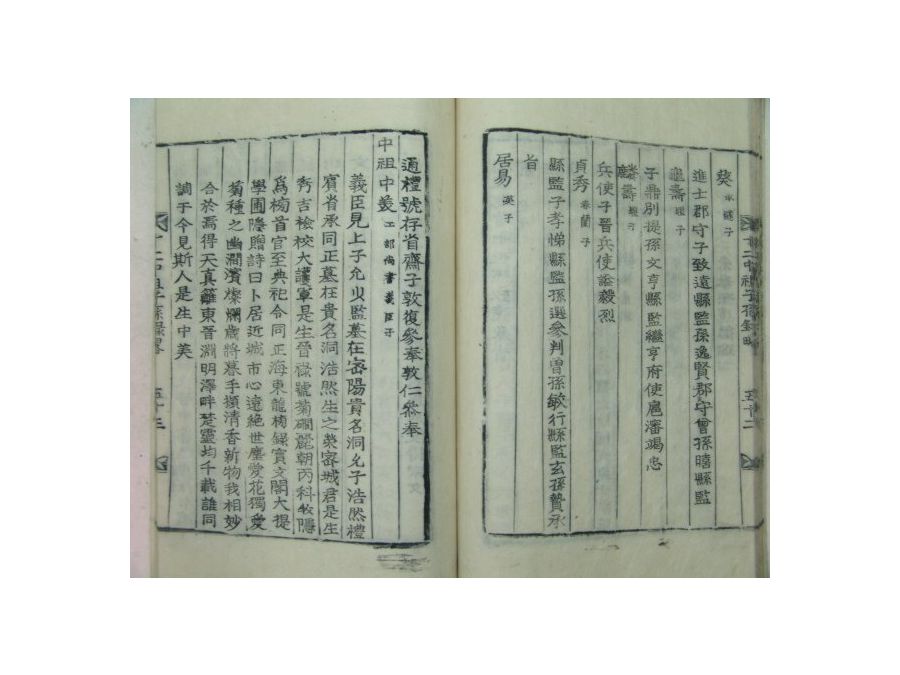 進士郡守子致遠縣監孫逸賢郡守曾孫晤縣監
龜壽 堰子
子鼎別提孫文亨縣監繼亨府使扈瀋竭忠
麟壽 堰子
兵使子晉兵使諡毅烈
貞秀 春蘭子
縣監子孝悌縣監孫選參判曾孫敏行縣監玄孫贄承
旨
居易 英子
通禮號存省齋子敦復參奉敦仁參奉
中祖中美 工部尚書義臣子
義臣見上子允少監墓在密陽貴名洞允子浩然禮
賓省承同正墓在貴名洞浩然生之榮密城君是生
秀吉檢校大護軍是生晉祿號菊磵麗朝丙科牧隱
爲榜首官至典祀令同正海東龍榜錄寶文閣大提
學圃隱贈詩曰卜居近城市心遠絶世塵愛花獨愛
菊種之幽澗濱燦爛歲將暮手擷清香新物我相妙
合於焉得天真籬東晉淵明澤畔楚靈均千載誰同
調于今見斯人是生中美